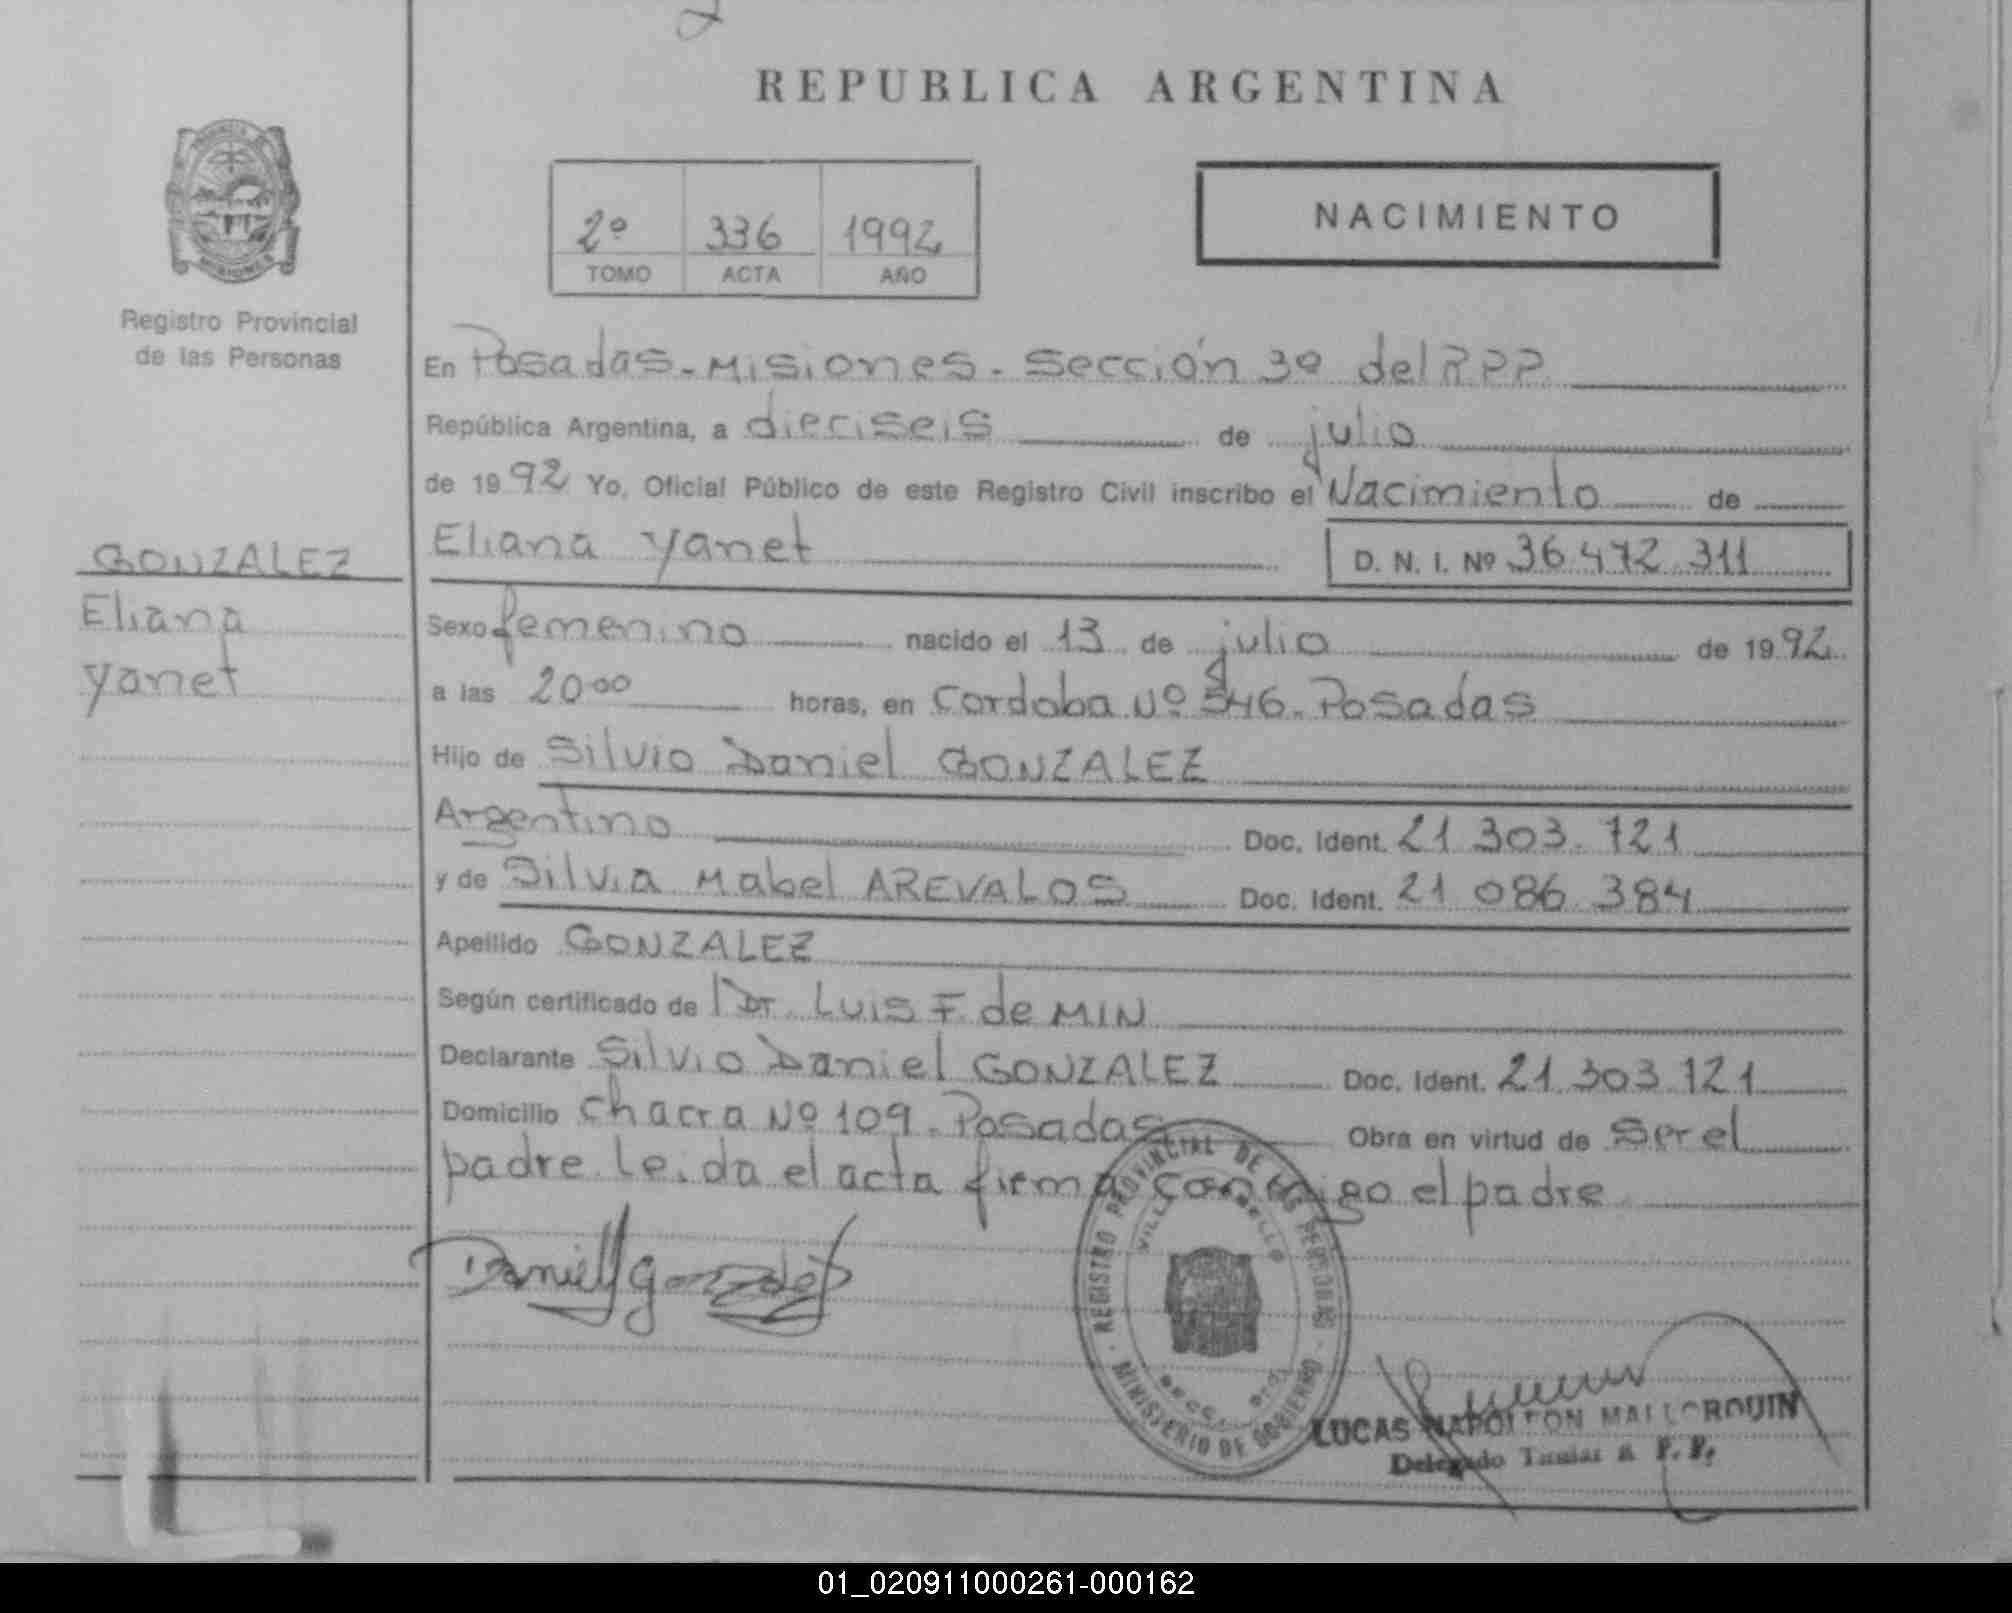 REPUBLICA ARGENTINA
PROVINCIA DE
MISIONES
Registro Provincial
de las Personas
2º 336 1992
TOMO ACTA AÑO
NACIMIENTO
En Posadas - Misiones. Sección 3º del RPP
República Argentina, a dieciseis de julio
de 1992 Yo, Oficial Público de este Registro Civil inscribo el Nacimiento de
Eliana Yanet
D. N. I. Nº 36.472.311
GONZALEZ
Eliana
Yanet
Sexo femenino nacido el 13 de julio de 1992
a las 20 00 horas, en Cordoba Nº 546. Posadas
Hijo de Silvio Daniel GONZALEZ
Argentino Doc. Ident. 21 303. 121
y de Silvia Mabel AREVALOS Doc. Ident. 21 086 384
Apellido GONZALEZ
Según certificado de Dr. Luis F. de MIN
Declarante Silvio Daniel GONZALEZ Doc. Ident. 21 303 121
Domicilio chacra Nº 109. Posadas Obra en virtud de Ser el
padre. Leida el acta firma conmigo el padre
Daniel Gonzalez
REGISTRO PROVINCIAL DE LAS PERSONAS - MINISTERIO DE GOBIERNO -
LUCAS NAPOLEON MALLORQUIN
Delegado
01_020911000261-000162